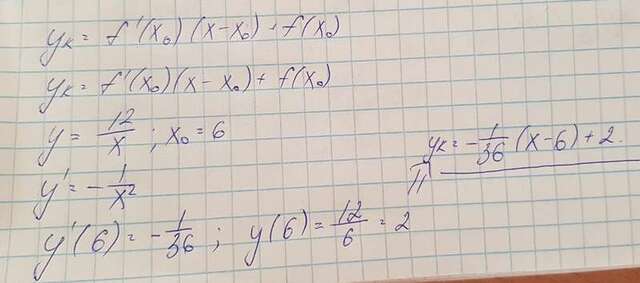 yк = f'(x₀)(x-x₀) · f(x₀)
yк = f'(x₀)(x-x₀) + f(x₀)
y = 12/x ; x₀ = 6
y' = -1/x²
y'(6) = -1/36 ; y(6) = 12/6 = 2
yк = -1/36 (x-6) + 2.